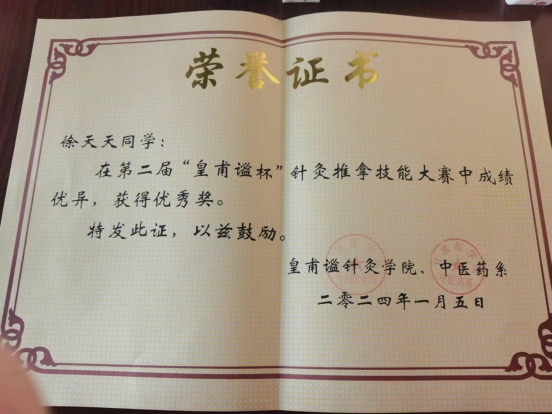 荣誉证书
徐天天同学：
在第二届“皇甫谧杯”针灸推拿技能大赛中成绩
优异，获得优秀奖。
特发此证，以兹鼓励。
皇甫谧针灸学院、中医药系
二零二四年一月五日